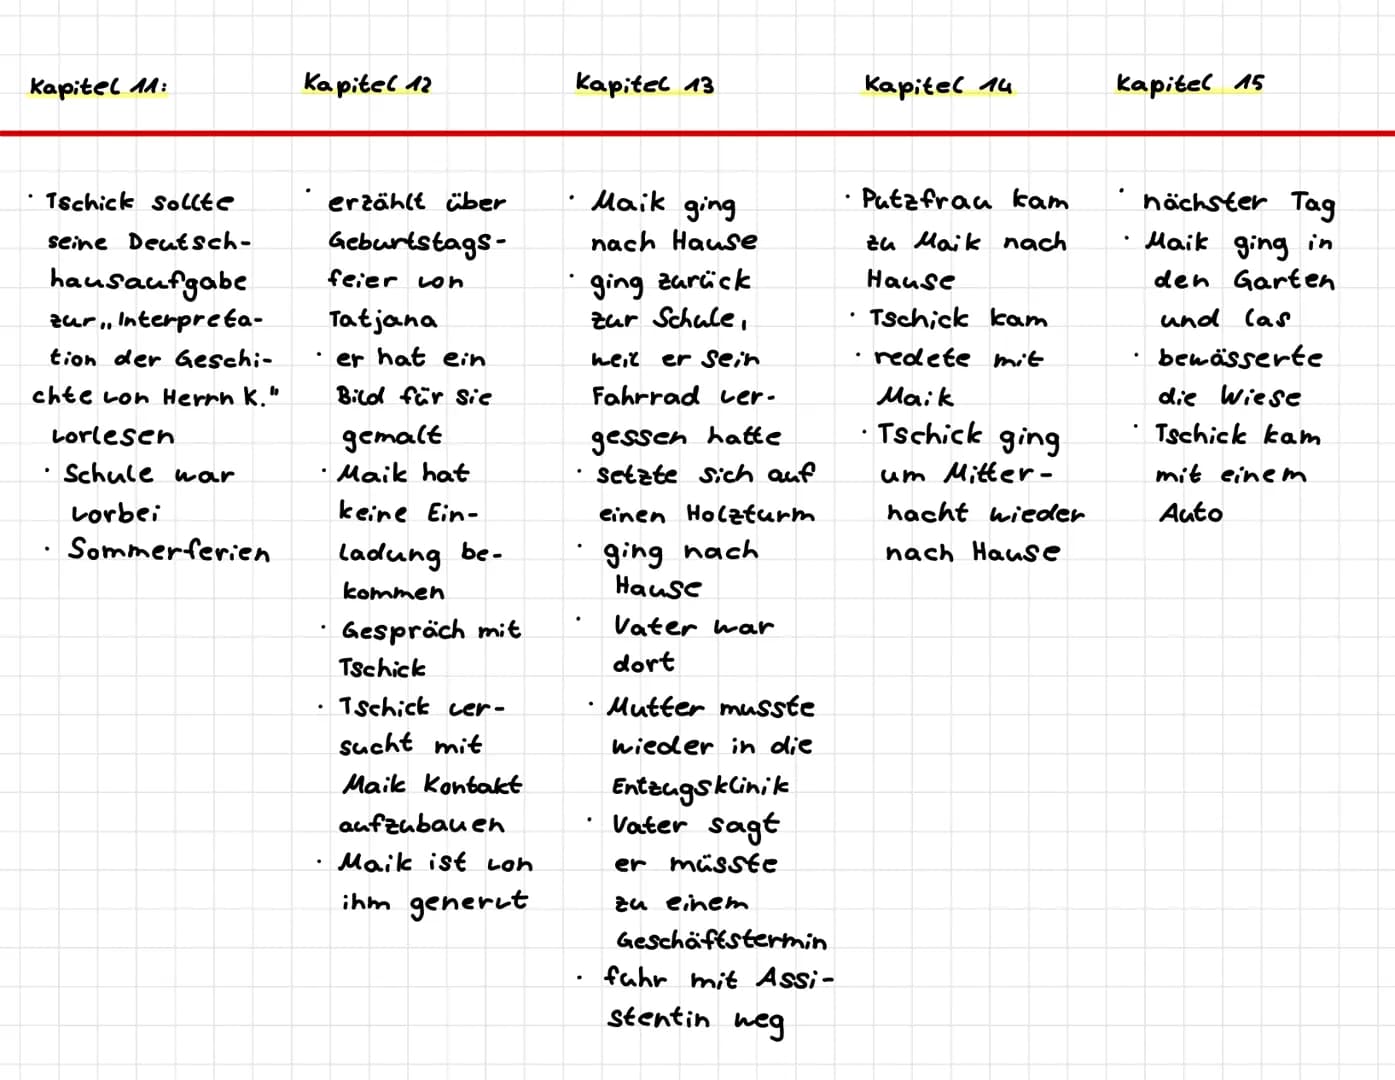 Kapitel 11:
· Tschick sollte
seine Deutsch-
hausaufgabe
zur „Interpreta-
tion der Geschi-
chte von Herrn K."
vorlesen
· Schule war
vorbei
· Sommerferien
Kapitel 12
· erzählt über
Geburtstags-
feier von
Tatjana
· er hat ein
Bild für sie
gemalt
· Maik hat
keine Ein-
ladung be-
kommen
· Gespräch mit
Tschick
· Tschick ver-
sucht mit
Maik Kontakt
aufzubauen
· Maik ist von
ihm genervt
Kapitel 13
· Maik ging
nach Hause
· ging zurück
zur Schule,
weil er sein
Fahrrad ver-
gessen hatte
· setzte sich auf
einen Holzturm
· ging nach
Hause
· Vater war
dort
· Mutter musste
wieder in die
Entzugsklinik
· Vater sagt
er müsste
zu einem
Geschäftstermin
· fuhr mit Assi-
stentin weg
Kapitel 14
· Putzfrau kam
zu Maik nach
Hause
· Tschick kam
· redete mit
Maik
· Tschick ging
um Mitter-
nacht wieder
nach Hause
Kapitel 15
· nächster Tag
· Maik ging in
den Garten
und las
· bewässerte
die Wiese
· Tschick kam
mit einem
Auto